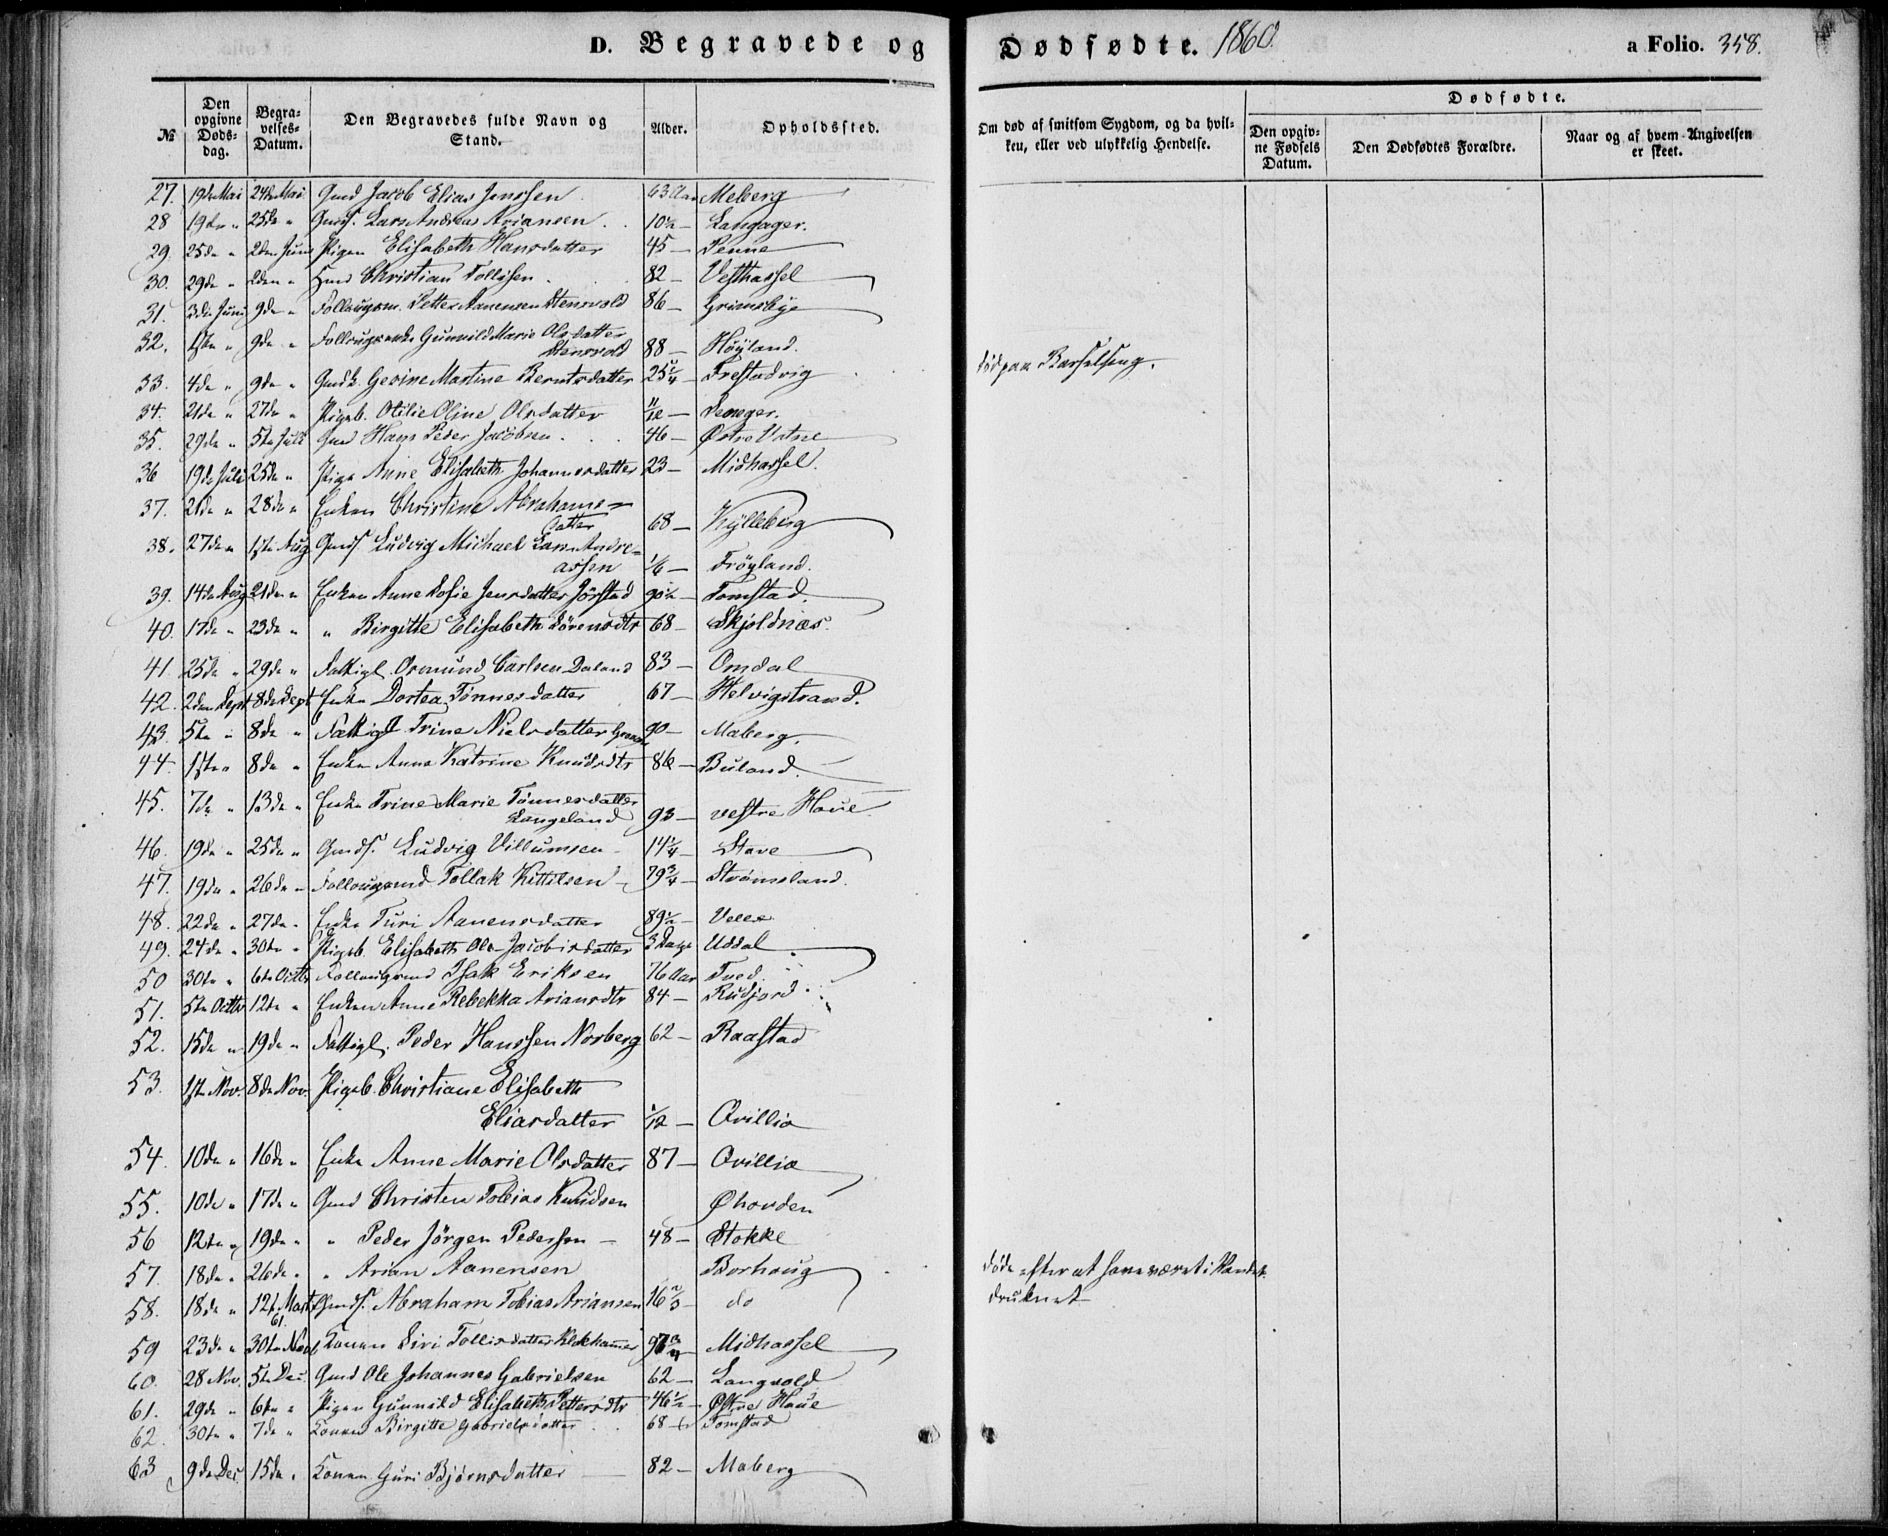 D. Begravede og Dødfødte. 1860. a Folio. 358.
№ Den opgivne Døds-dag. Begra-velses-Datum. Den Begravedes fulde Navn og Stand. Alder. Opholdssted. Om død af smitsom Sygdom, og da hvil-ken, eller ved ulykkelig Hendelse. Dødfødte. Den opgiv-ne Fødsels Datum. Den Dødfødtes Forældre. Naar og af hvem Angivelsen er skeet.
27. 19de Mai 24de Mai Gmd Jacob Elias Jenssen 63 Aar Meberg
28 19de " 25de " Gmds. Lars Andreas Ariansen 10½ — Langager.
29. 25de " 2den Juni Pigen Elisabeth Hansdatter 45 — Penne
30. 29de " 2den " Hmd Christian Tollisen 82 — Vesthassel
31. 3de Juni 9de " Follaugsm. Petter Aanensen Stensvold 86 — Grimsbye
32. 1ste " 9de " Follaugsenke Gunnild Marie Olsdatter
Stensvold 88 — Høyland.
33. 4de " 9de " Gmdk. Gesine Martine Berntsdatter 25¼ — Frestadvig død paa Barselseng.
34. 21de " 27de " Pigeb. Otilie Oline Olsdatter 11/12 —
35. 29de " 5te Juli Gmd Hans Peder Jacobsen 46 — Østre Vatne
36 19de Juli 25de " Pige Anne Elisabeth Johannesdatter 23 — Midhassel.
37. 21de " 28de " Enken Christine Abrahams-
datter 68 — Kylleberg
38. 27de " 1ste Aug Gmds Ludvig Michael Lars Andre-
assen 1/6 — Frøyland.
39. 14de Aug 21de " Enken Anne Sofie Jensdatter Jørstad 90½ — Tomstad.
40. 17de " 23de " " Birgitte Elisabeth Sørensdtr 68 — Skjoldnæs.
41. 25de " 29de " Fattigl. Osmund Carlsen Daland 83 — Omdal
42. 2den Sept 8de Sept Enke Dortea Tønnesdatter 67 — Helvigstrand.
43. 5te " 8de " Fattigl Trine Nielsdatter 90 — Maberg.
44. 1ste " 8de " Enke Anne Katrine Knudsdtr 86 — Buland.
45. 7de " 13de " Enke Trine Marie Tønnesdatter
Langeland 93 — vestre Haue
46. 19de " 25de " Gmds. Ludvig Villumsen 14¼ — Stave
47. 19de " 26de " Follaugsmd Tollak Kittelsen 79¾ — Strømsland.
48. 22de " 27de " Enke Turi Aanensdatter 89½ —
49. 24de " 30te " Pigeb. Elisabeth Ole Jacobsdatter 3 Dage Uddal
50 30te " 6te Octbr Follaugsmd Isak Eriksen 76 Aar Tved
51. 5te Octbr 12te " Enken Anne Rebekka Ariansdtr 84 — Rudjord
52. 15de " 19de " Fattigl. Peder Hanssen Norberg 62 — Raastad
53. 1ste Nov. 8de Nov. Pigeb. Christiane Elisabeth
Eliasdatter 1/12 — Qvillia
54. 10de " 16de " Enke Anne Marie Olsdatter 87 — Qvillia
55. 10de " 17de " Gmd Christen Tobias Knudsen Øhorden
56 12te " 19de " " Peder Jørgen Pedersen — 48 — Stokke
57. 18de " 26de " " Arian Aanensen Borhoug døde efter at have været i Vandet
58. 18de " 12te Marts 61 Gmds. Abraham Tobias Ariansen 16⅔ — do druknet
59 23de " 30te Nov Konen Siri Tollisdatter 97¾ Midhassel
60. 28 Nov. 5te Dec. Gmd Ole Johannes Gabrielsen 62 — Langvold
61. 29de " 6te " Pigen Gunnild Elisabeth Pettersdtr 46½ — Østre Haue
62. 30te " 7de " Konen Birgitte Gabrielsdatter 68 — Tomstad
63 9de Dec 15de " Konen Guri Bjørnsdatter 82 — Maberg